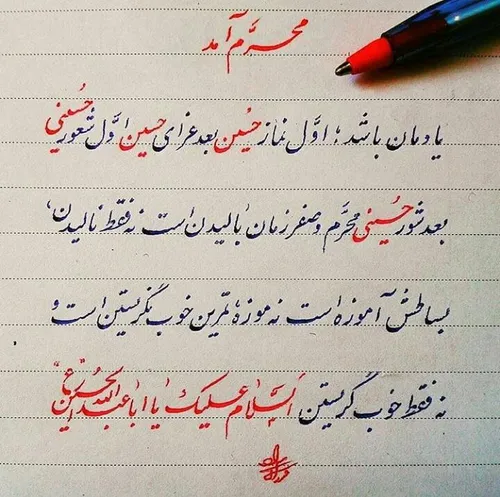 محرّم آمد
یادمان باشد؛ اوّل نماز حسین بعد عزای حسین اوّل شعور حسینی
بعد شور حسینی محرّم و صفر زمان بالیدن است نه فقط نالیدن،
بساطش آموزه است نه موزه، تمرین خوب نگریستن است و
نه فقط خوب گریستن السّلام علیک یا اباعبدالله الحسین (ع)